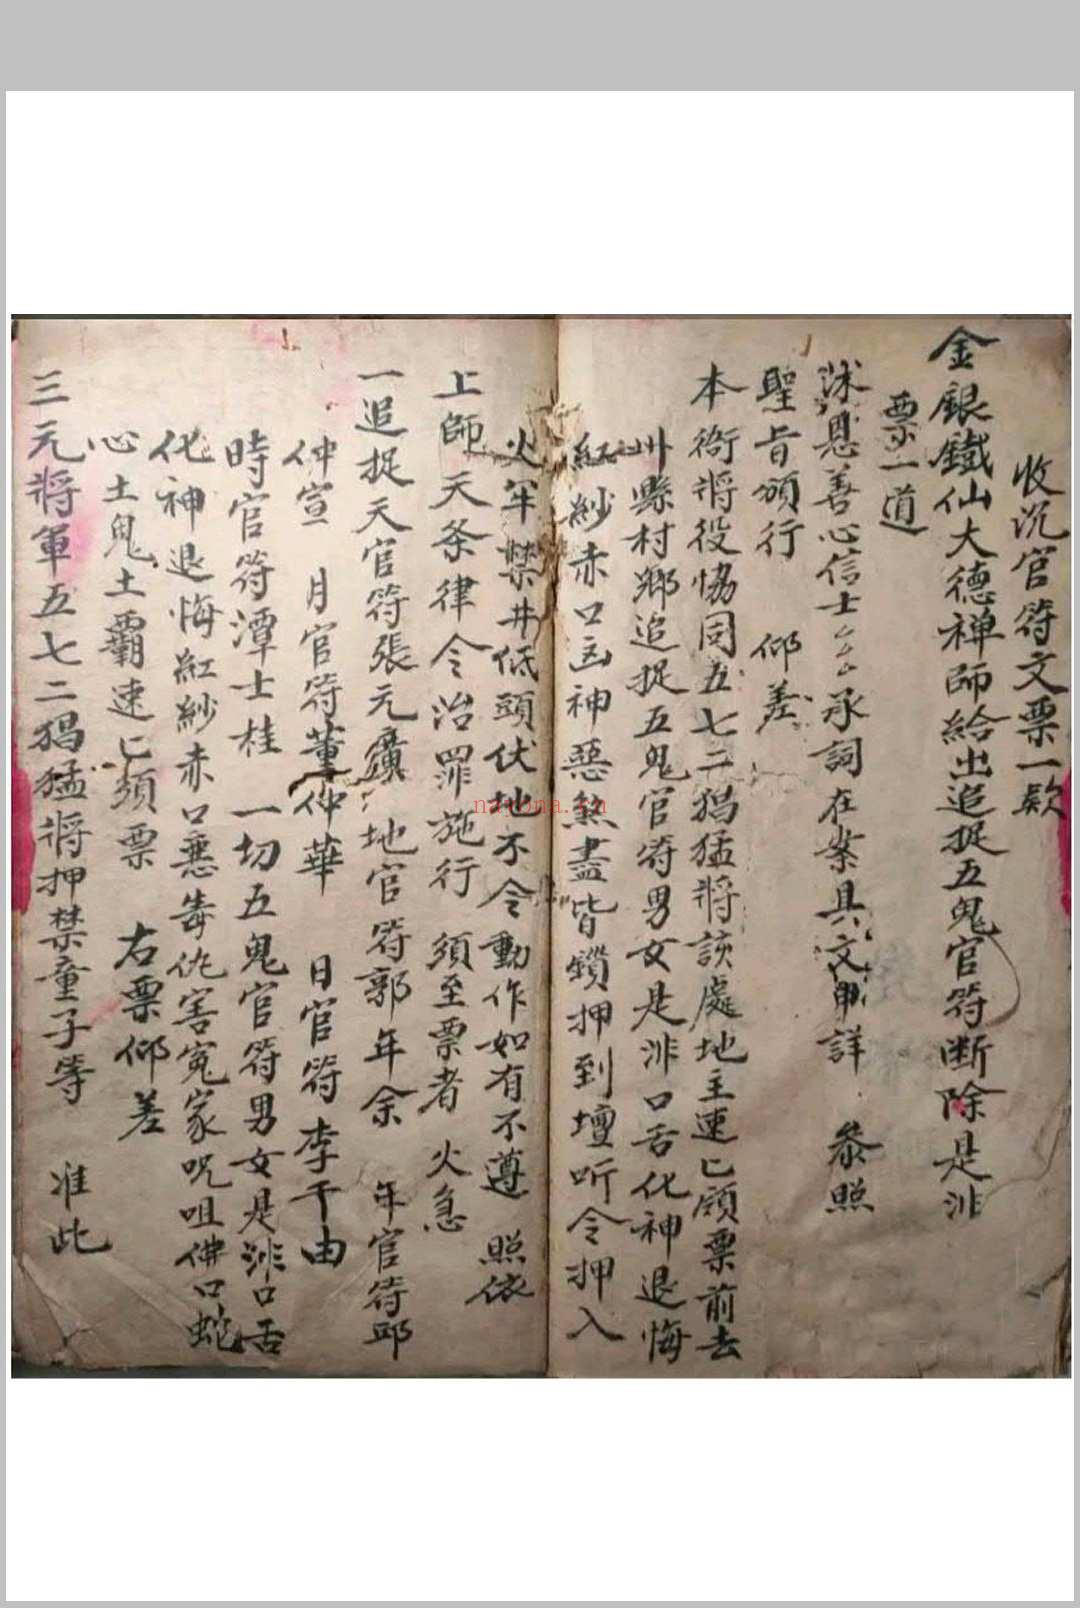 收沉官符文票一款
金銀鐵仙大德禅師給出追捉五鬼官符断除是非
票一道
沭恩善心信士 承詞在案具文申詳 叅照
聖旨頒行 仰差
本衙将役恊同五七二猖猛將該處地主速己領票前去
州縣村鄉追捉五鬼官符男女是非口舌化神退悔
紅紗赤口凶神惡煞盡皆鎖押到壇听令押入
火牢禁井低頭伏地不令動作如有不遵 照依
上師天条律令治罪施行 須至票者 火急
一追捉天官符張元 地官符郭年余 年官符邱
仲宣 月官符董仲華 日官符李千由
時官符潭士桂 一切五鬼官符男女是非口舌
化神退悔紅紗赤口惡毒仇害冤家咒咀佛口蛇
心土鬼土霸速己須票 右票仰差
三元將軍五七二猖猛將押禁童子等 准此
nayona.cn